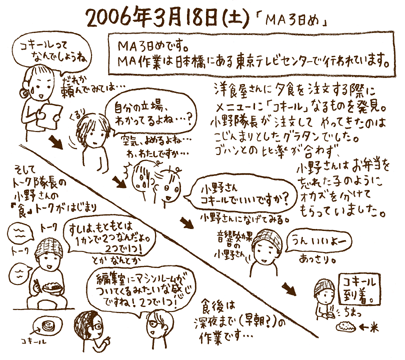 2006年3月18日(土)「MA3日め」
MA3日めです。
MA作業は日本橋にある東京テレビセンターで行われています。
コキールって
なんでしょうね
だれか
頼んでみては…
自分の立場、
わかってるよね…?
空気、よめるよね…
わ、わたしですか…
洋食屋さんに夕食を注文する際に
メニューに「コキール」なるものを発見。
小野隊長が注文して やってきたのは
こじんまりとしたグラタンでした。
ゴハンとの比率が合わず、
小野さんはお弁当を
忘れた子のように
オカズを分けて
もらっていました。
小野さん
コキールでいいですか?
小野さんになげてみる。
音響効果
の
小野さん
うん、いいよー
あっさり。
コキール
到着。
ちょっ
←米
そして
トーク隊長の
小野さんの
『食』トークがはじまり
トーク
トーク
コキール
すしは、もともとは
1カンで2つなんだよ。
2つで1つ!
とか なんとか
編集室にマシンルームが
ついてくるみたいな感じ
ですね!2つで1つ!
食後は
深夜まで(早朝?)の
作業です…